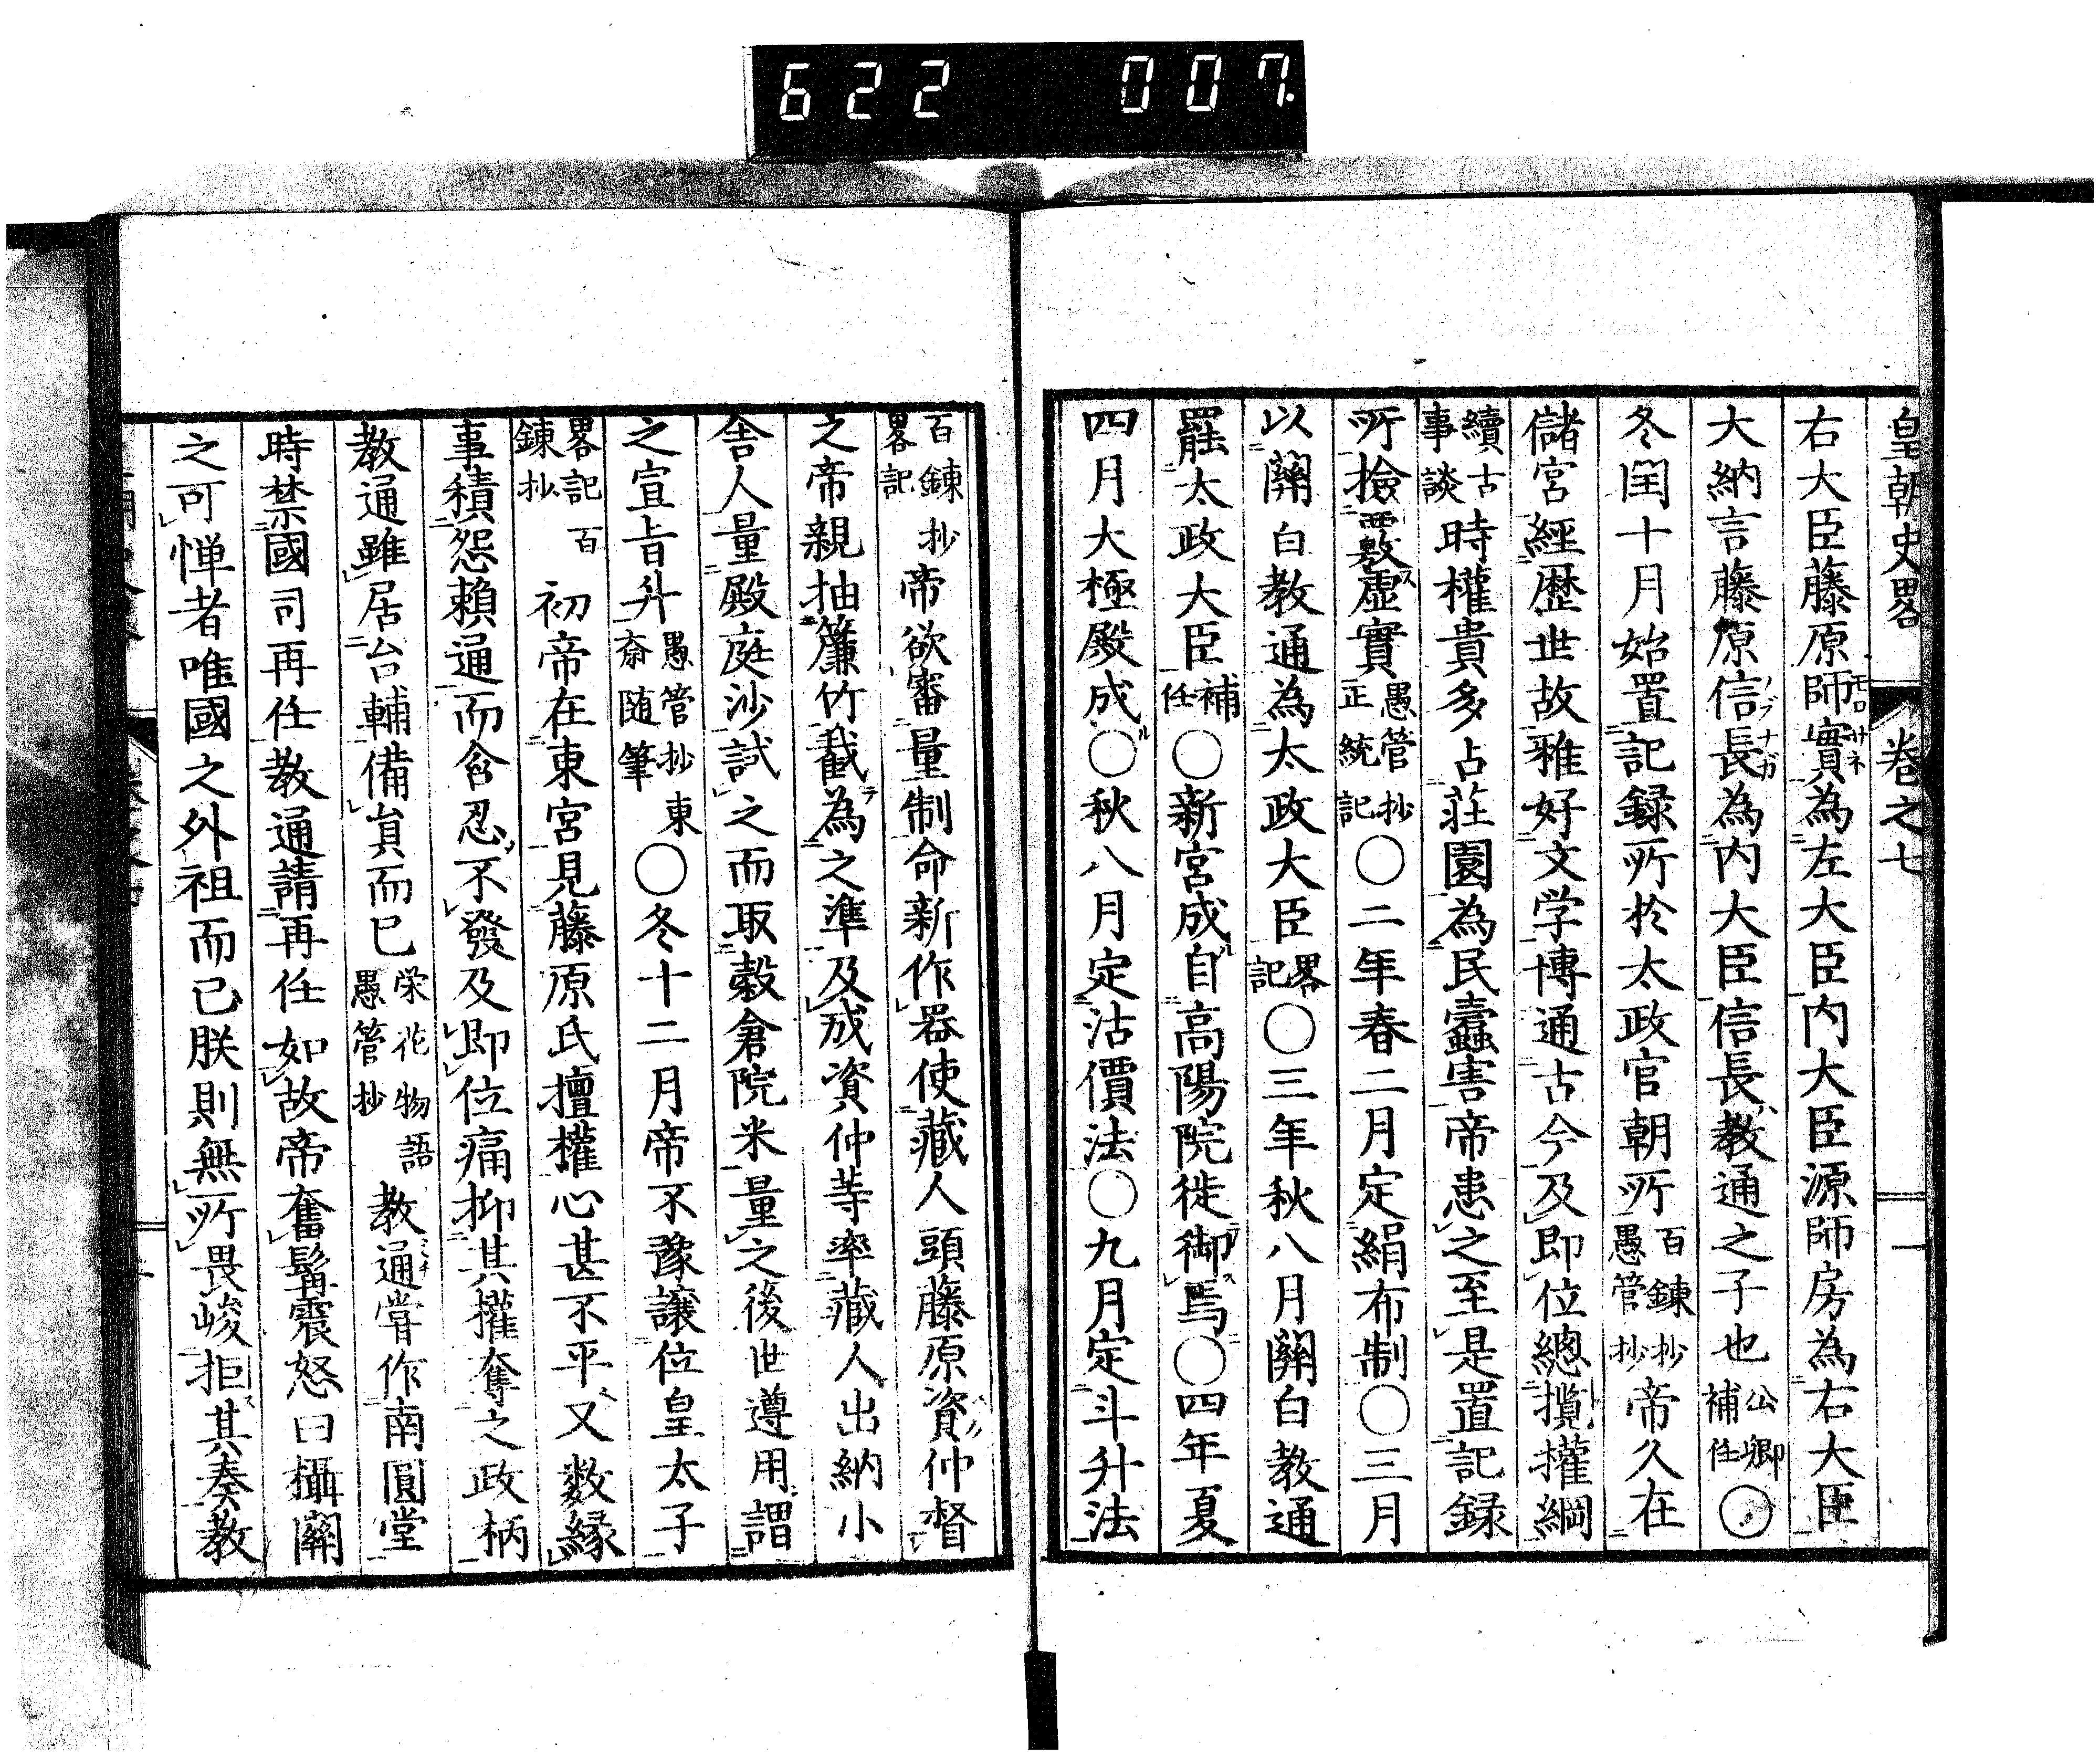 622 007.
皇朝史畧 卷之七 一
右大臣藤原師實為左大臣内大臣源師房為右大臣
大納言藤原信長為内大臣信長教通之子也公卿補任〇
冬閏十月始置記録所於太政官朝所百錬抄愚管抄帝久在
儲宮經歴世故雅好文学博通古今及即位總攬權綱
續古事談時權貴多占莊園為民蠹害帝患之至是置記録
所撿覈虚實愚管抄正統記〇二年春二月定絹布制〇三月
以關白教通為太政大臣畧記〇三年秋八月關白教通
罷太政大臣補任〇新宮成自高陽院徙御焉〇四年夏
四月大極殿成〇秋八月定沽價法〇九月定斗升法
百錬抄畧記帝欲審量制命新作器使藏人頭藤原資仲督
之帝親抽簾竹截為之準及成資仲等率藏人出納小
舎人量殿庭沙試之而取穀倉院米量之後世遵用謂
之宣旨升愚管抄東齋随筆〇冬十二月帝不豫讓位皇太子
畧記百錬抄初帝在東宮見藤原氏擅權心甚不平又数縁
事積怨頼通而含忍不發及即位痛抑其權奪之政柄
教通雖居台輔備員而已栄花物語愚管抄教通嘗作南圓堂
時禁國司再任教通請再任如故帝奮髯震怒曰攝關
之可憚者唯國之外祖而已朕則無所畏峻拒其奏教